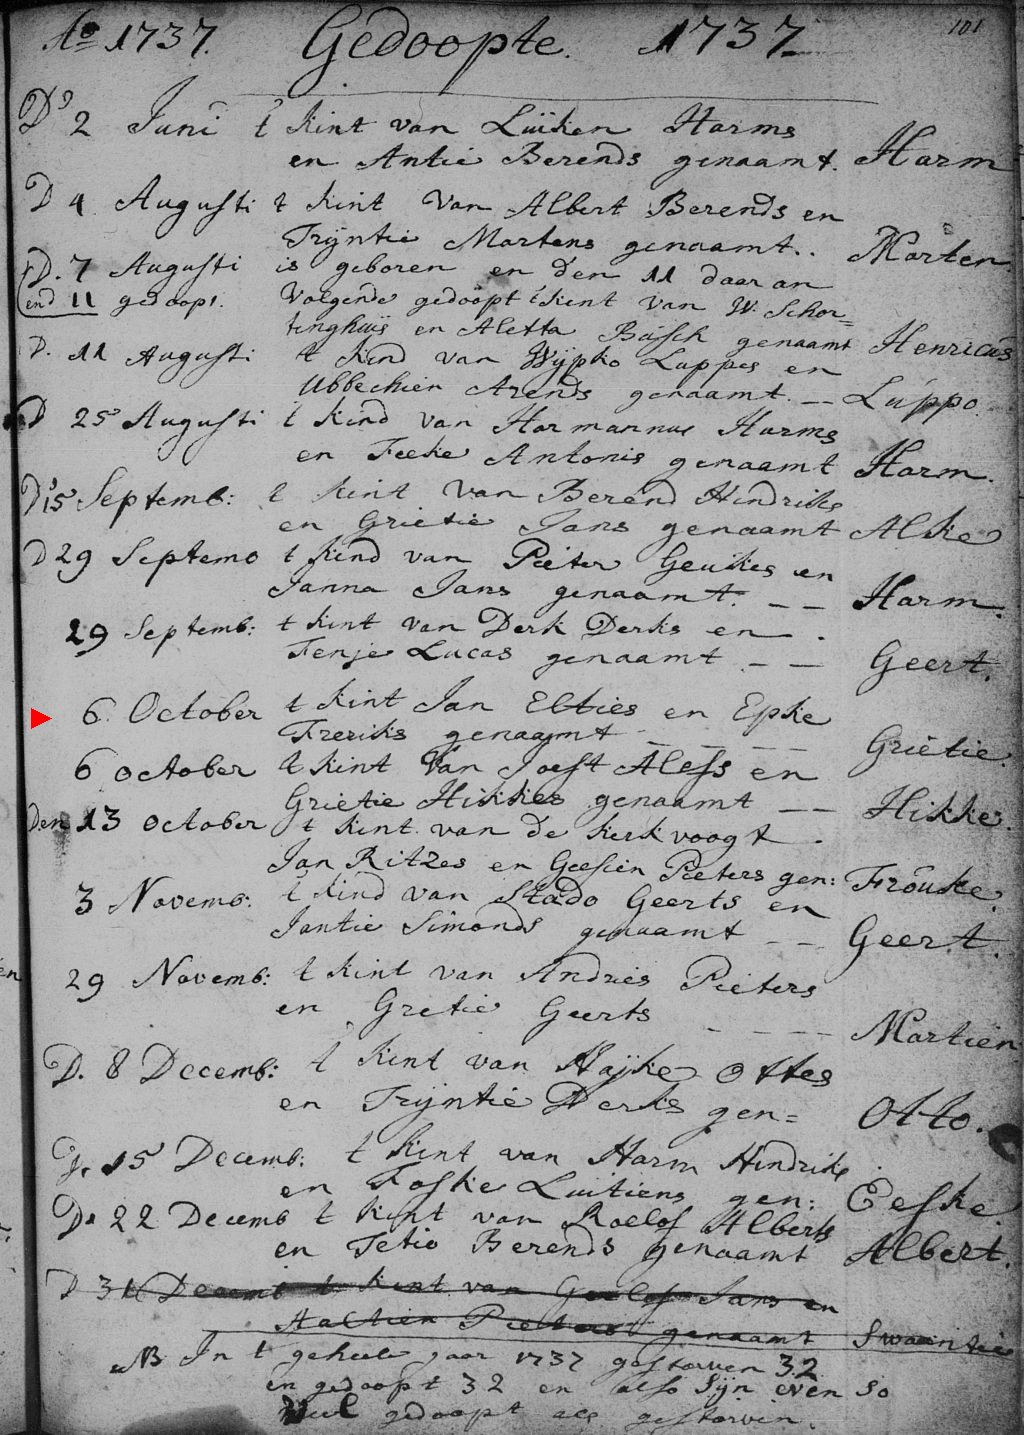 Ao 1737. Gedoopte. 1737 101
Ds 2 Juni t kint van Luiken Harms
en Antie Berends genaamt. Harm
D 4 Augusti t kint van Albert Berends en
Trÿntie Martens genaamt.. Marten.
D. 7 Augusti is geboren en den 11 daar an
end 11 gedoopt. Volgende gedoopt t kent van W. Schor=
tinghuijs en Aletta Busch genaamt Henricus
D. 11 Augusti t kind van Wÿpko Luppes en
Ubbechien Arends genaamt. Luppo.
D 25 Augusti t kind van Harmannus Harms
en Feeke Antonis genaamt Harm.
Ds 15 Septemb: t kint van Berend Hindriks
en Grietie Jans genaamt Alke
D 29 Septemb t kind van Pieter Geukes en
Janna Jans genaamt. Harm.
29 Septemb: t kint van Derk Derks en
Fenje Lucas genaamt Geert.
6. October t kint Jan Elties en Epke
Freriks genaamt Grietie.
6 october t kint van Joest Alefs en
Grietie Hikkes genaamt Hikke.
Den 13 october t kint van de kerkvoogt
Jan Ritzes en Geesien Pieters gen: Frouke.
3 Novemb: t kind van Stado Geerts en
Jantie Simonds genaamt Geert.
29 Novemb: t kint van Andries Pieters
en Gretie Geerts Martien
D. 8 Decemb: t kint van Haÿke Ottes
en Trÿntie Derks gen= Otto.
15 Decemb: t kint van Harm Hindriks
en Foske Luitiens gen: Eeske.
D. 22 Decemb t kint van Roelof Alberts
en Tetie Berends genaamt Albert.
D 31 Decemb t kint van Geelof Jans en
Aaltien Pieters genaamt Swaantie
NB In t geheele jaar 1737 gestorven 32
en gedoopt 32 en also sÿn even so
veel gedoopt als gestorven.